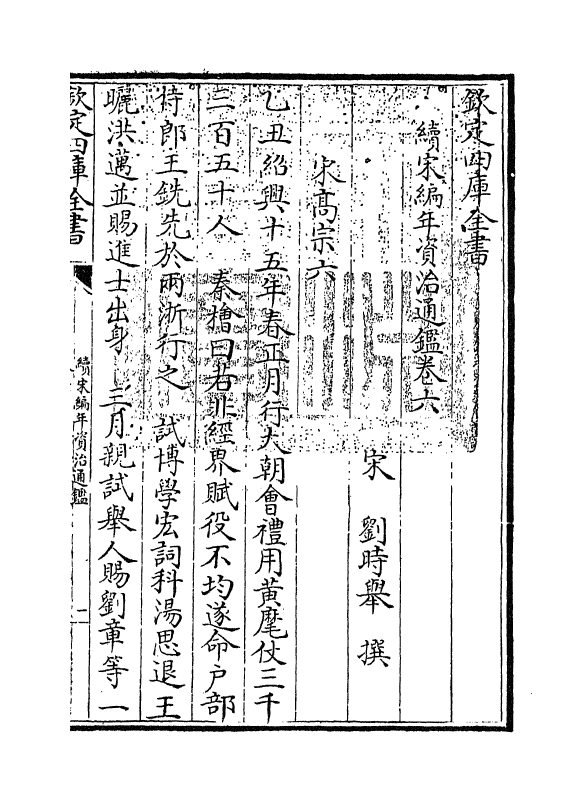 欽定四庫全書
續宋編年資治通鑑卷六
宋　劉時舉　撰
宋高宗六
乙丑紹興十五年春正月行大朝會禮用黄麾仗三千
三百五十人　秦檜曰若非經界賦役不均遂命戸部
侍郎王鈇先於兩浙行之　試博學宏詞科湯思退王
曮洪邁並賜進士出身　三月親試舉人賜劉章等一
欽定四庫全書
續宋編年資治通鑑
一